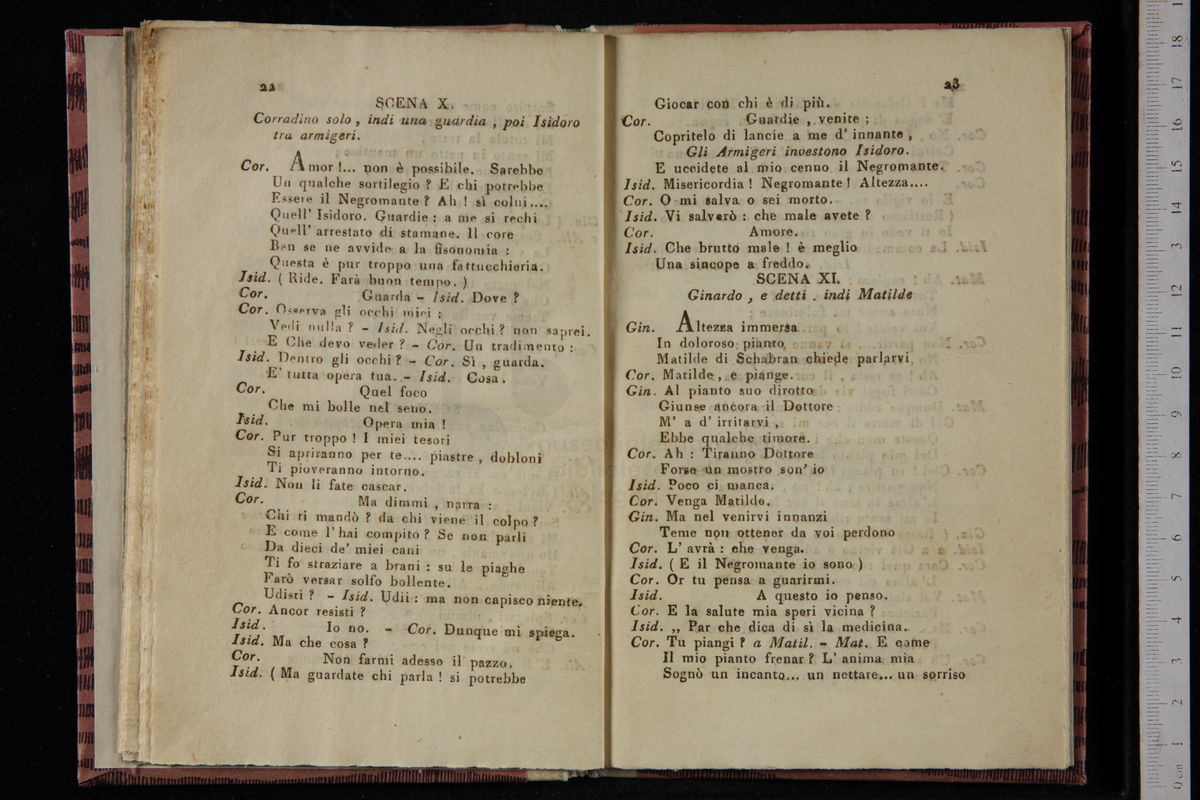 22
SCENA X.
Corradino solo , indi una guardia , poi Isidoro
tra armigeri.
Cor. Amor !... non è possibile. Sarebbe
Un qualche sortilegio ? E chi potrebbe
Essere il Negromante ? Ah ! sì colui....
Quell' Isidoro. Guardie : a me si rechi
Quell' arrestato di stamane. Il core
Ben se ne avvide a la fisonomia :
Questa è pur troppo una fattucchieria.
Isid. ( Ride. Farà buon tempo. )
Cor. Guarda - Isid. Dove ?
Cor. Osserva gli occhi miei :
Vedi nulla ? - Isid. Negli occhi ? non saprei.
E Che devo veder ? - Cor. Un tradimento :
Isid. Dentro gli occhi ? - Cor. Sì , guarda.
E' tutta opera tua. - Isid. Cosa .
Cor. Quel foco
Che mi bolle nel seno.
Isid. Opera mia !
Cor. Pur troppo ! I miei tesori
Si apriranno per te.... piastre , dobloni
Ti pioveranno intorno.
Isid. Non li fate cascar.
Cor. Ma dimmi , narra :
Chi ti mandò ? da chi viene il colpo ?
E come l' hai compito ? Se non parli
Da dieci de' miei cani
Ti fo straziare a brani : su le piaghe
Farò versar solfo bollente.
Udisti ? - Isid. Udii : ma non capisco niente.
Cor. Ancor resisti ?
Isid. Io no. - Cor. Dunque mi spiega.
Isid. Ma che cosa ?
Cor. Non farmi adesso il pazzo.
Isid. ( Ma guardate chi parla ! si potrebbe
23
Giocar con chi è di più.
Cor. Guardie , venite ;
Copritelo di lancie a me d' innante ,
Gli Armigeri investono Isidoro.
E uccidete al mio cenno il Negromante.
Isid. Misericordia ! Negromante ! Altezza....
Cor. O mi salva o sei morto.
Isid. Vi salverò : che male avete ?
Cor. Amore.
Isid. Che brutto male ! è meglio
Una sincope a freddo.
SCENA XI.
Ginardo , e detti . indi Matilde
Gin. Altezza immersa
In doloroso pianto
Matilde di Schabran chiede parlarvi
Cor. Matilde , e piange.
Gin. Al pianto suo dirotto
Giunse ancora il Dottore
M' a d' irritarvi ,
Ebbe qualche timore.
Cor. Ah : Tiranno Dottore
Forse un mostro son' io
Isid. Poco ci manca.
Cor. Venga Matilde.
Gin. Ma nel venirvi innanzi
Teme non ottener da voi perdono
Cor. L' avrà : che venga.
Isid. ( E il Negromante io sono )
Cor. Or tu pensa a guarirmi.
Isid. A questo io penso.
Cor. E la salute mia speri vicina ?
Isid. ,, Par che dica di sì la medicina.
Cor. Tu piangi ? a Matil. - Mat. E come
Il mio pianto frenar ? L' anima mia
Sognò un incanto... un nettare... un sorriso
0 cm 1 2 3 4 5 6 7 8 9 10 11 12 13 14 15 16 17 18